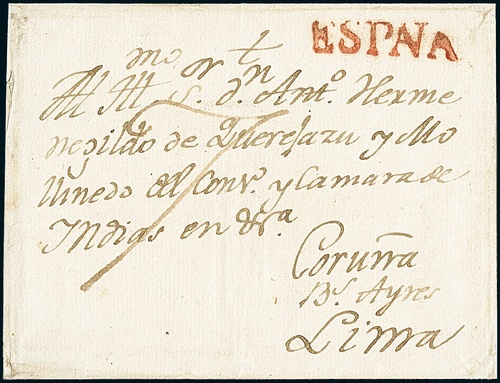 ESPÑA
Al Ill.mo S.or d.n Ant.o Herme
negildo de Querejazu y Mo
llinedo del Conv.o y Camara de
Indias en &.a
Coruña
B.s Ayres
Lima